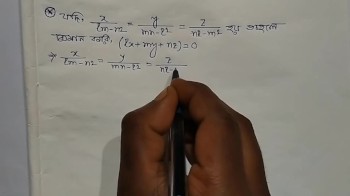 * যদি, x/(lm-n²) = y/(mn-l²) = z/(nl-m²) হয় তাহলে
প্রমাণ করো, (lx+my+nz)=0
⇒ x/(lm-n²) = y/(mn-l²) = z/(nl-